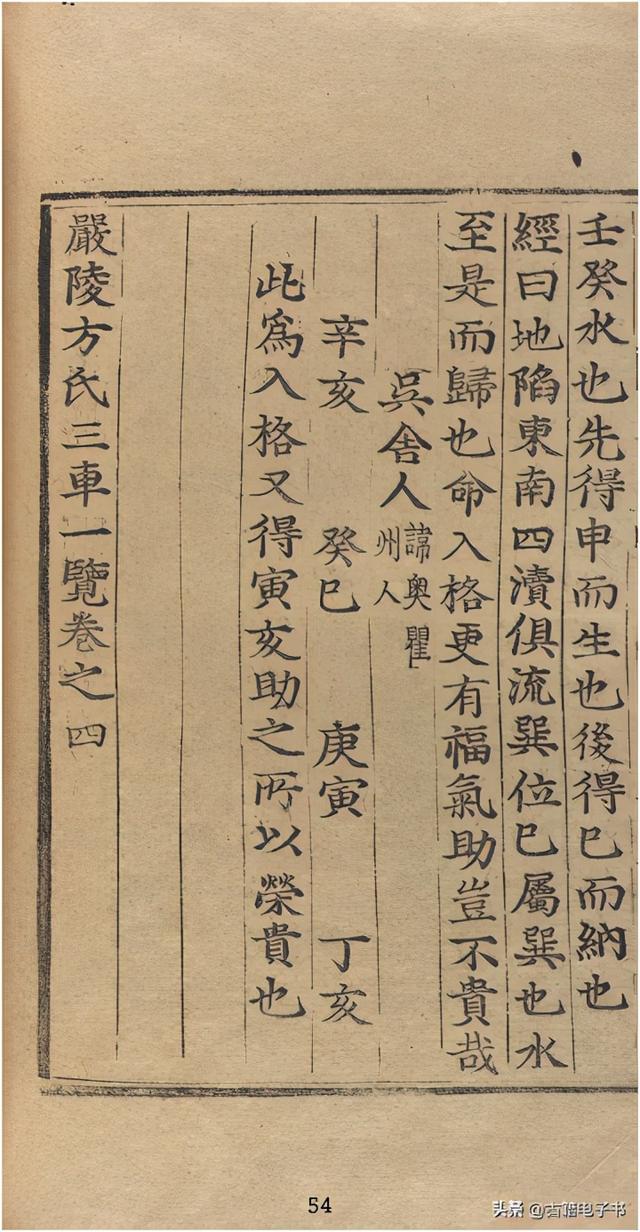 壬癸水也先得申而生也後得巳而納也
經曰地陷東南四瀆俱流巽位巳屬巽也水
至是而歸也命入格更有福氣助豈不貴哉
吳舍人諱奧瞿州人
辛亥 癸巳 庚寅 丁亥
此爲入格又得寅亥助之所以榮貴也
嚴陵方氏三車一覽卷之四
54
头条 @古籍电子书